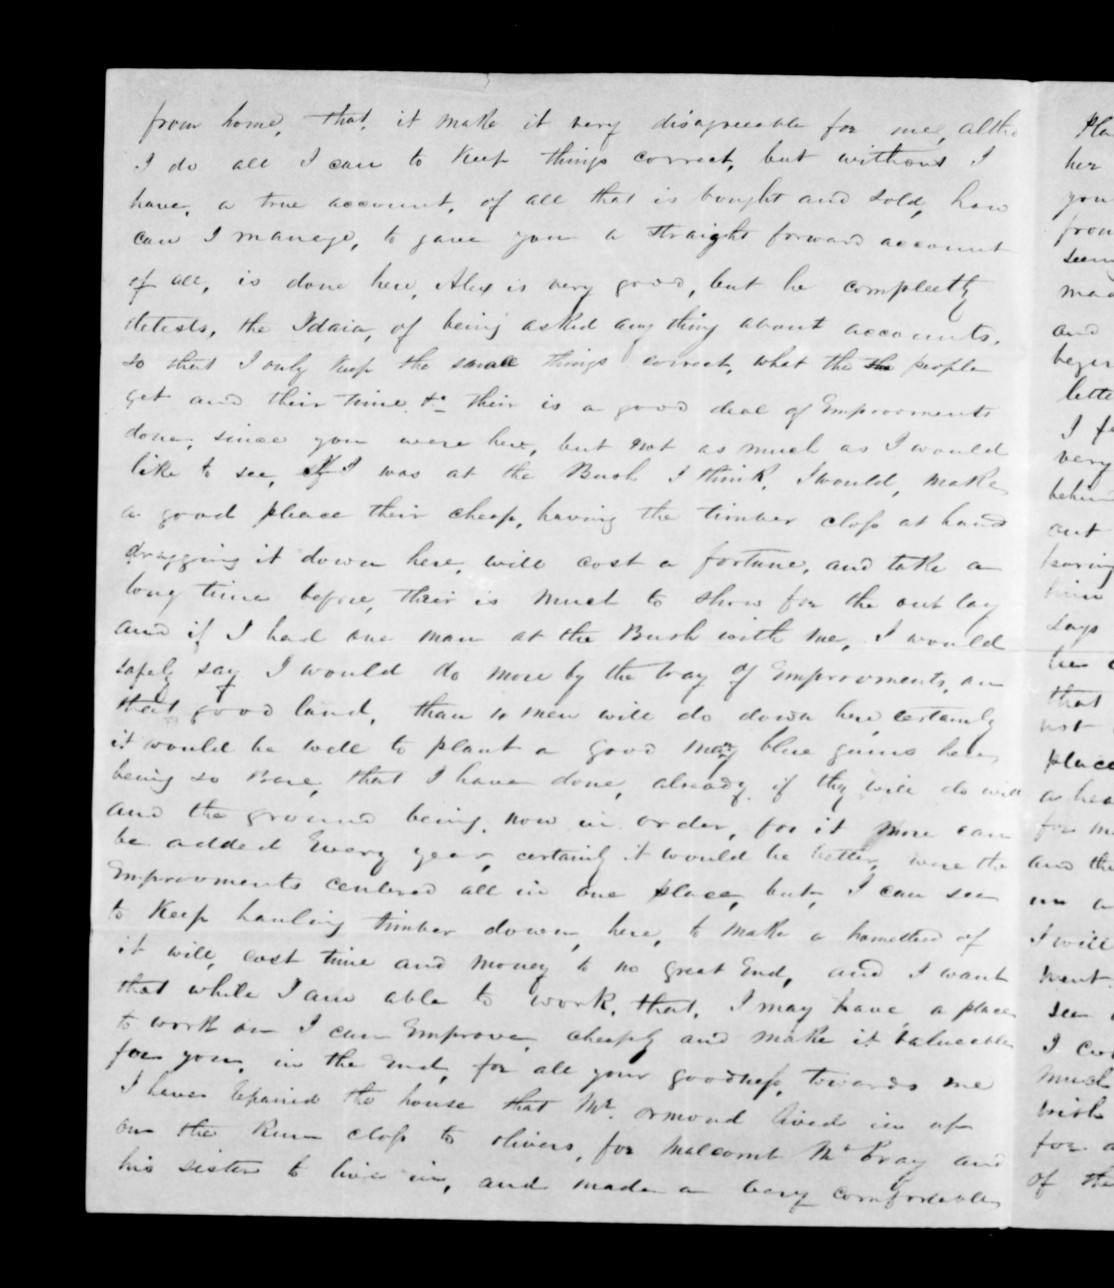 from home, that, it make it very disagreeable for me, altho
I do all I can to Keep things correct, but without I
have, a true account, of all that is bought and sold, how
can I manage, to gave you a straight forward account
of all, is done here, Alex is very good, but he compleetly
detests, the Idaia, of being asked any thing about accounts.
so that I only keep the small things correct, what the the people
get and their time &c their is a good deal of Emproovments
done, since you were here, but not as much as I would
like to see, If I was at the Bush I think, I would, make
a good pleace their cheap, having the timber close at hand
dragging it down here, will cost a fortune, and take a
long time before, their is much to show for the out lay
and if I had one man at the Bush with me, I would
safely say I would do more by the way of Emproovments, on
that good land, than 10 men will do down here, certainly
it would be well to plant a good many blue gums here,
being so Bare, that I have done, already, if they will do well
and the ground being, now in order, for it more can
be added Every year, certainly it would be better, were the
Emprovments centered all in one place, but, I can see
to Keep hauling timber down, here, to make a homested of
it will, cost time and money to no great End, and I want
that while I am able to work, that, I may have a place
to work on I can Emprove, cheaply and make it valueable
for you, in the End, for all your goodness, towards me
I have repaired the house that Mr. Ormond lived in up
on the Run close to olivers, for Malcomb McCray and
his sister to live in, and made a very comfortable
Pla
her
you
from
seem
mad
and
began
lette
I f
very
behin
out
having
him
says
he
that
not
place
a hea
for m
and the
on a
I will
went
see
I cou
much
wish
for a
of the